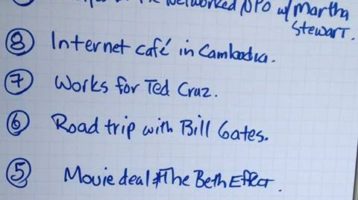 The Networked NPO w/ Martha
Stewart.
8 Internet café in Cambodia.
7 Works for Ted Cruz.
6 Road trip with Bill Gates.
5 Movie deal The Beth Effect.